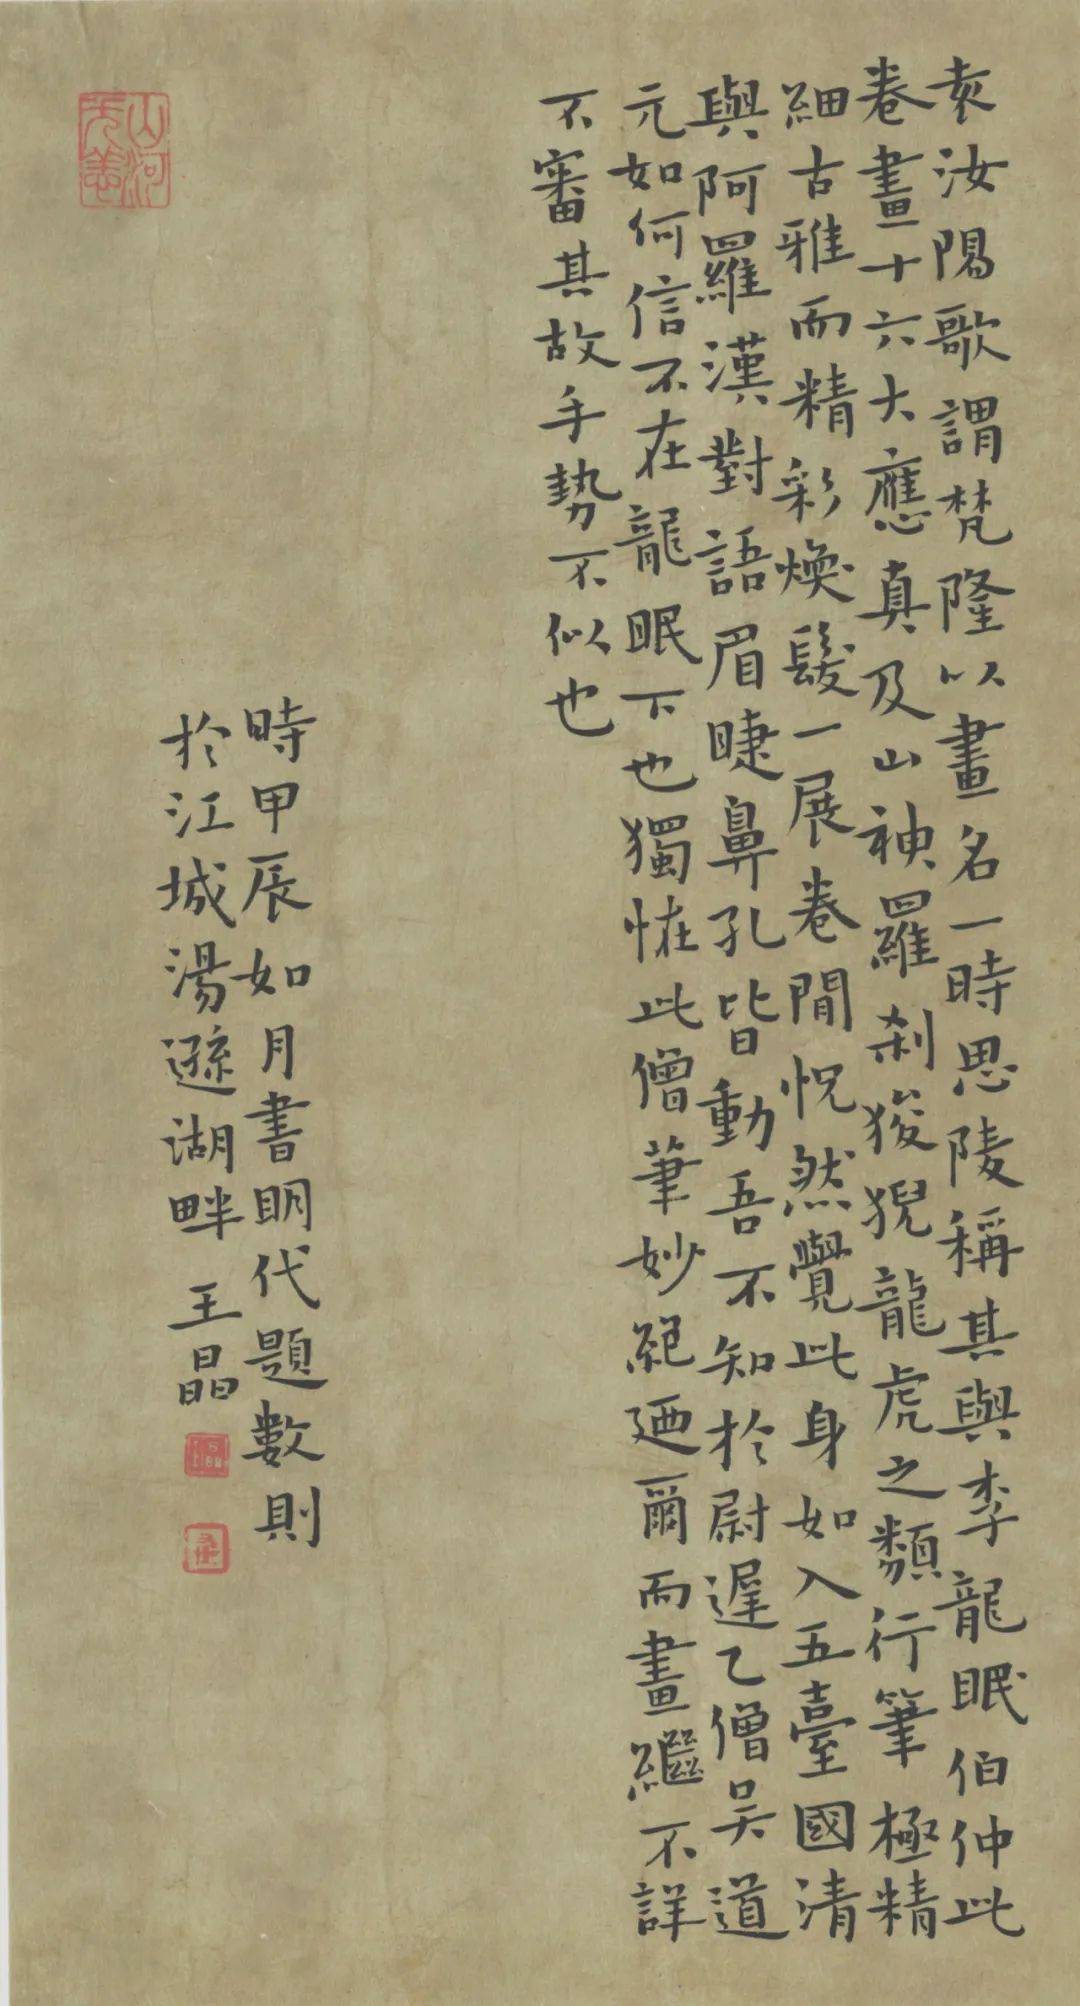 袁汝陽歌謂梵隆以畫名一時思陵稱其與李龍眠伯仲此
卷畫十六大應真及山神羅剎狻猊龍虎之類行筆極精
細古雅而精彩煥髮一展卷間怳然覺此身如入五臺國清
與阿羅漢對語眉睫鼻孔皆動吾不知於尉遲乙僧吳道
元如何信不在龍眠下也獨恠此僧筆妙絕廼爾而畫繼不詳
不審其故手勢不似也
時甲辰如月書明代題數則
於江城湯遜湖畔 王晶
山河